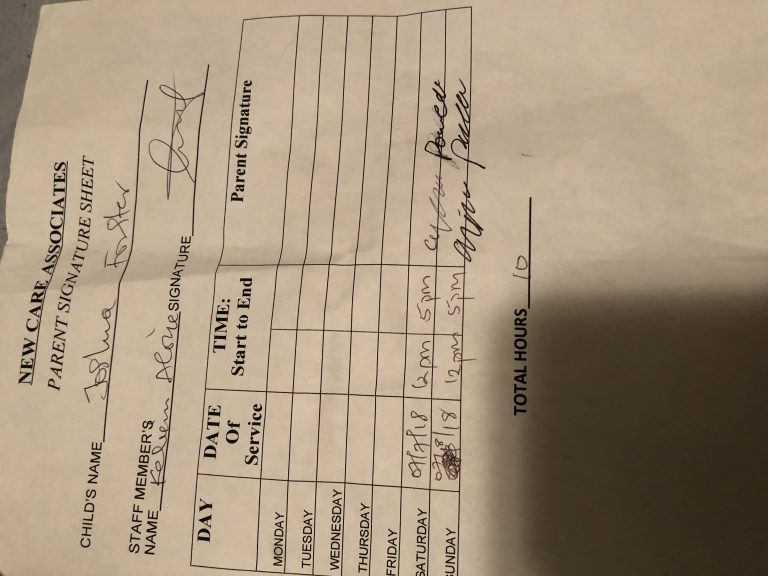 NEW CARE ASSOCIATES
PARENT SIGNATURE SHEET
CHILD'S NAME Joshua Forster
STAFF MEMBER'S
NAME SIGNATURE
DAY DATE Of Service TIME: Start to End Parent Signature
MONDAY
TUESDAY
WEDNESDAY
THURSDAY
FRIDAY
SATURDAY 07/7/18 12pm 5pm
SUNDAY 18 12pm 5pm
TOTAL HOURS 10